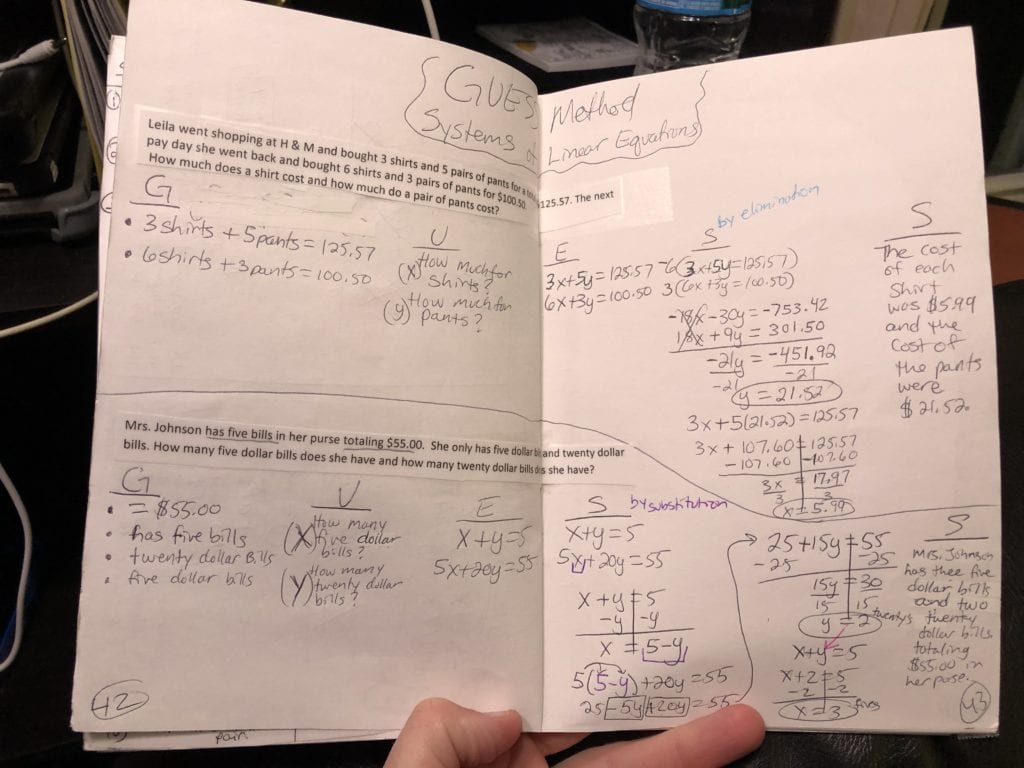 GUESS Method
Systems of Linear Equations
Leila went shopping at H & M and bought 3 shirts and 5 pairs of pants for a 125.57. The next
pay day she went back and bought 6 shirts and 3 pairs of pants for $100.50.
How much does a shirt cost and how much do a pair of pants cost?
G
• 3 shirts + 5 pants = 125.57
• 6 shirts + 3 pants = 100.50
U
(x) How much for
shirts?
(y) How much for
pants?
E
3x+5y=125.57
6x+3y=100.50
S by elimination
-6(3x+5y=125.57)
3(6x+3y=100.50)
-18x-30y=-753.42
18x+9y=301.50
-21y=-451.92
-21 -21
y=21.52
3x+5(21.52)=125.57
3x+107.60=125.57
-107.60 -107.60
3x = 17.97
3 3
x=5.99
S
The cost
of each
Shirt
was $5.99
and the
cost of
the pants
were
$21.52.
Mrs. Johnson has five bills in her purse totaling $55.00. She only has five dollar bill and twenty dollar
bills. How many five dollar bills does she have and how many twenty dollar bills does she have?
G
• = $55.00
• has five bills
• twenty dollar Bills
• five dollar bills
U
(X) How many
five dollar
bills?
(Y) How many
twenty dollar
bills?
E
x+y=5
5x+20y=55
S by substitution
x+y=5
5x+20y=55
x+y=5
-y -y
x = 5-y
5(5-y)+20y=55
25-5y+20y=55
25+15y=55
-25 -25
15y=30
15 15
y=2 twentys
x+y=5
x+2=5
-2 -2
x=3 fives
S
Mrs. Johnson
has thee five
dollar bills
and two
twenty
dollar bills
totaling
$55.00 in
her purse.
42
43
pain